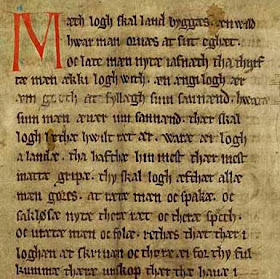 Mæth logh skal land byggæs. æn wild
hwar man oruæs at sit eghæt.
oc late mæn nytæ iafnæth tha thyrf
tæ mæn ækki logh with. æn ængi logh ær
æm goth at fyllæghæ sum sannænd. hwaræ
sum mæn æuær um sannænd. thær skal
logh letæ hwilt ræt ær. waræ æi logh
a landæ. tha hafthæ hin mest thær mest
mattæ gripæ. thy skal logh æfthær allæ
mæn gøræs. at rætæ mæn oc spakæ. oc
saklosæ nytæ theræ ræt oc theræ spekh.
oc urætæ mæn oc folæ. rethæs that thær i
loghæn ær skriuæn oc thoræ æi for thy ful
kumnæ theræ unskop thær the hauæ i